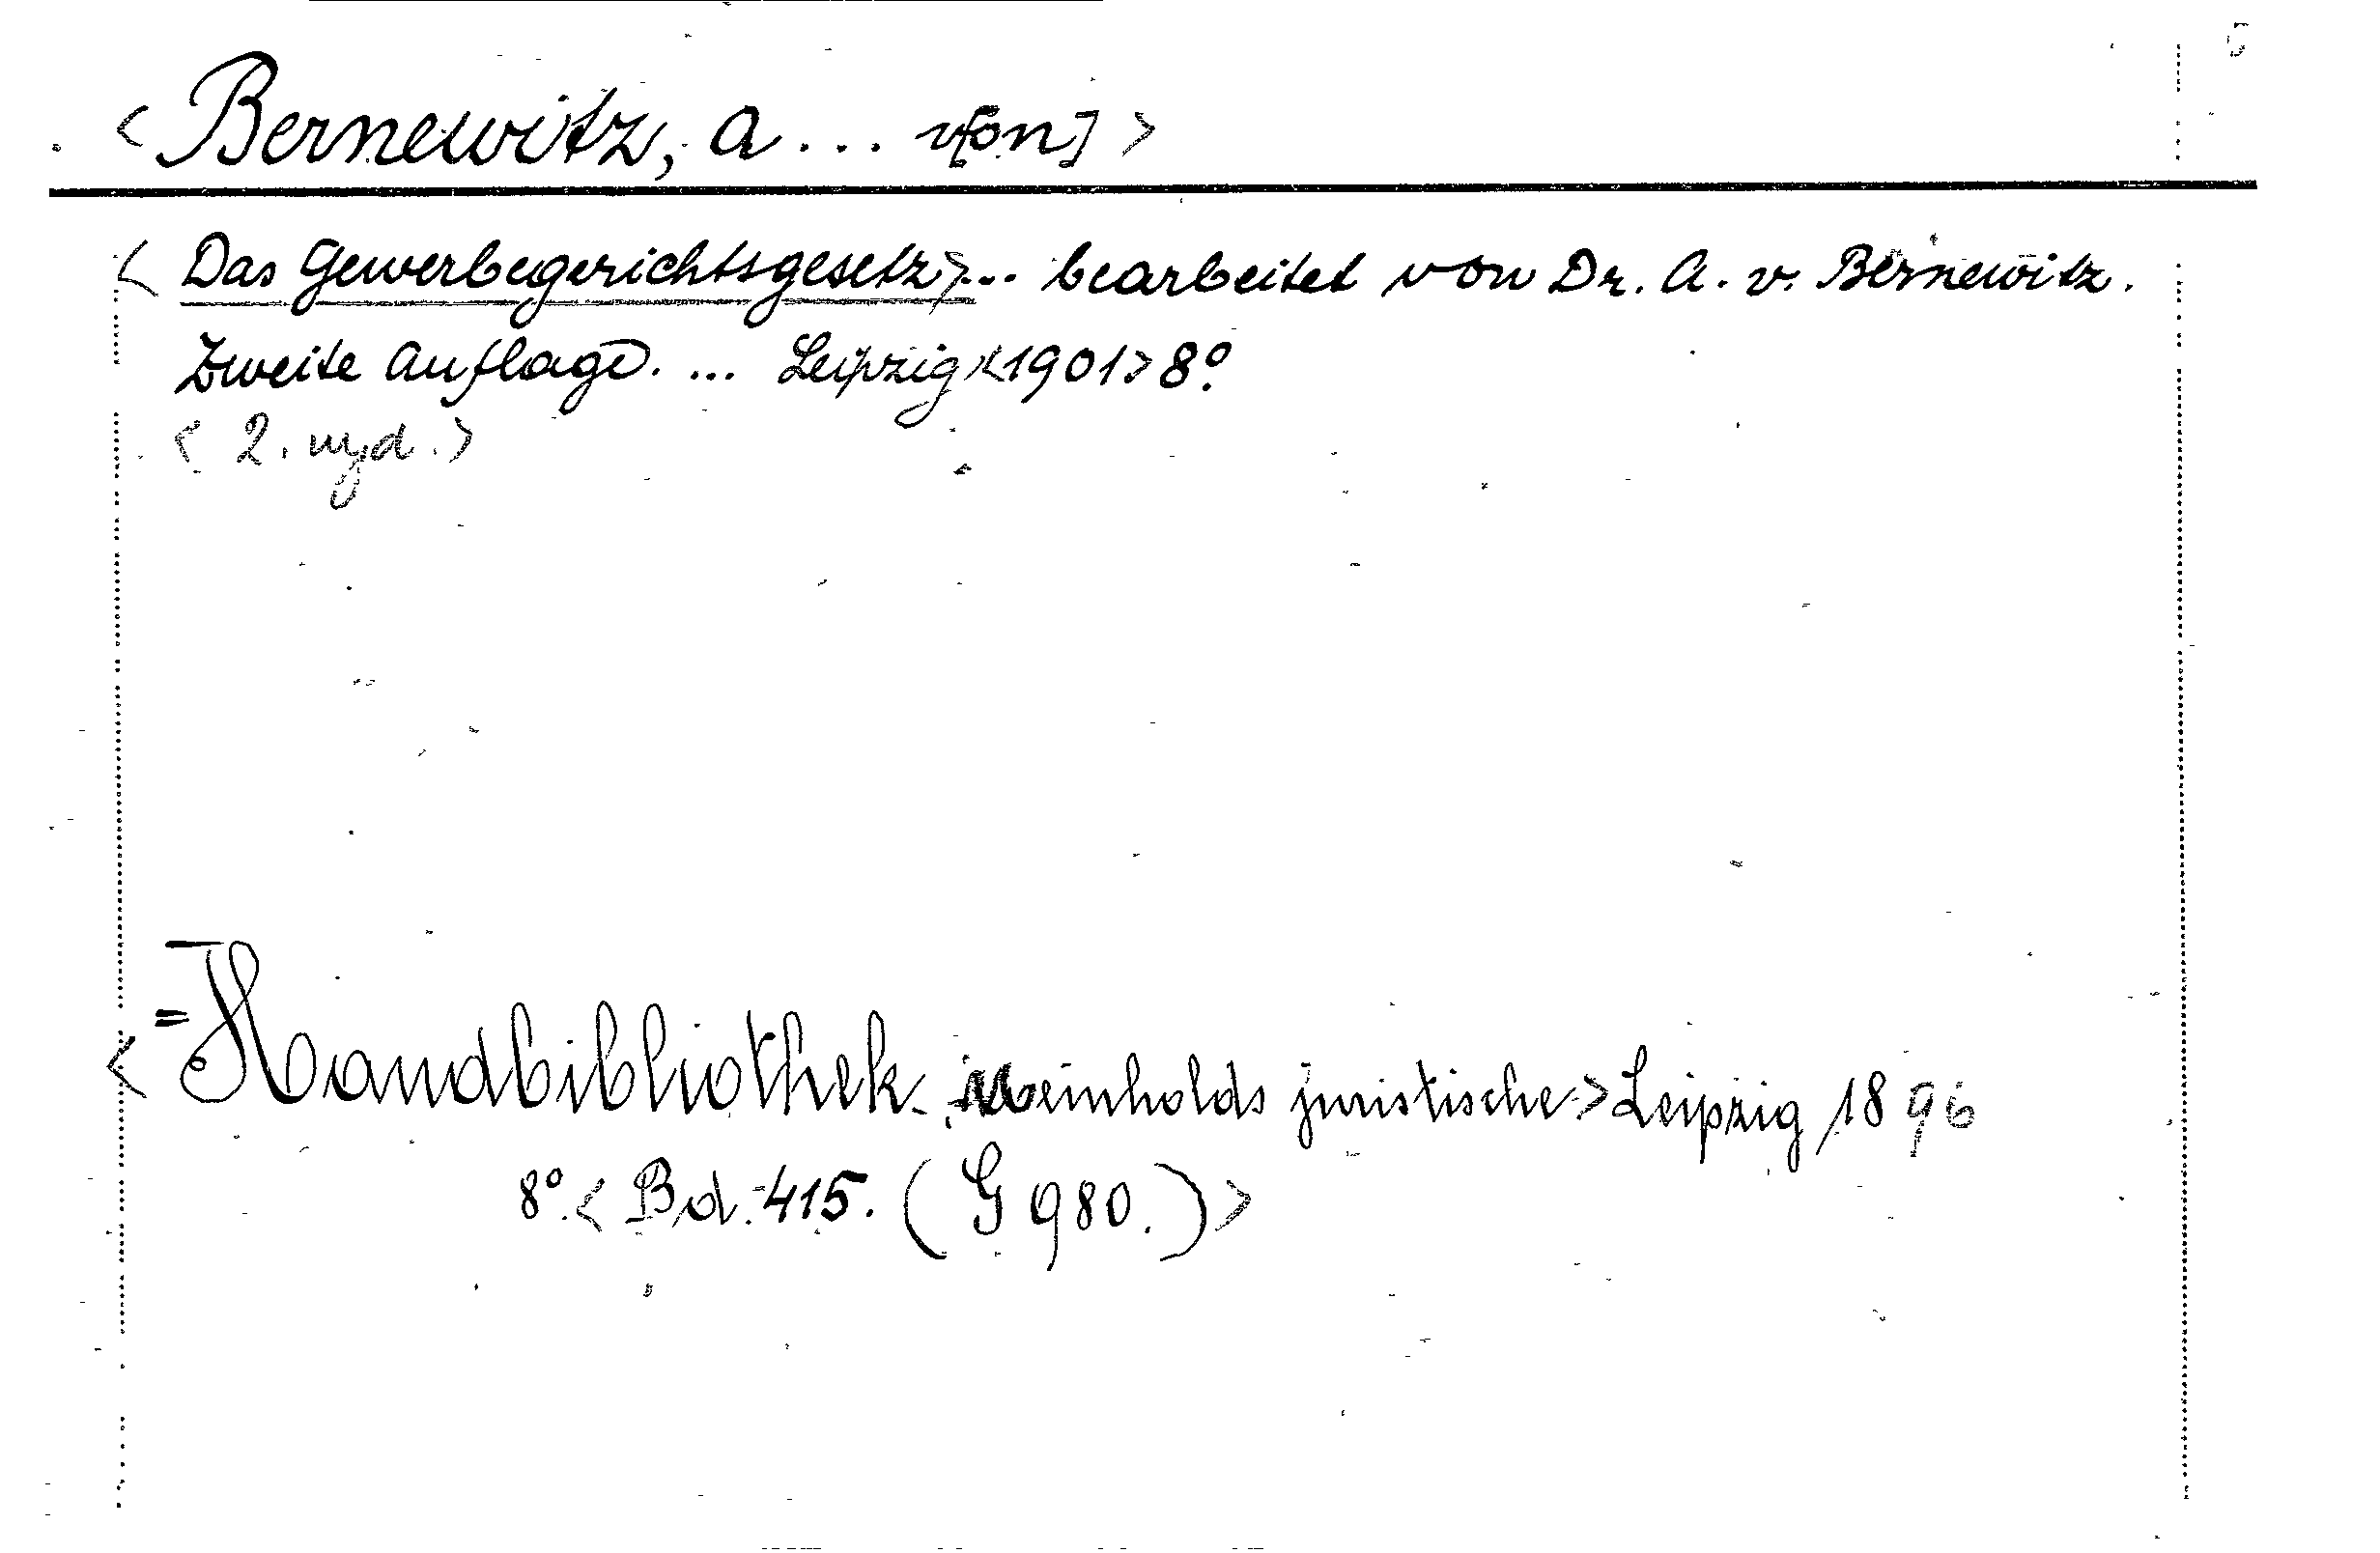 <Bernewitz, A... v[on]>
<Das Gewerbegerichtsgesetz>... bearbeitet von Dr. A. v. Bernewitz.
Zweite Auflage. ... Leipzig <1901> 8°.
<2. wyd.>
<=Handbibliothek, Meinholds juristische> Leipzig 1896
8°. <Bd. 415. (G 980.)>